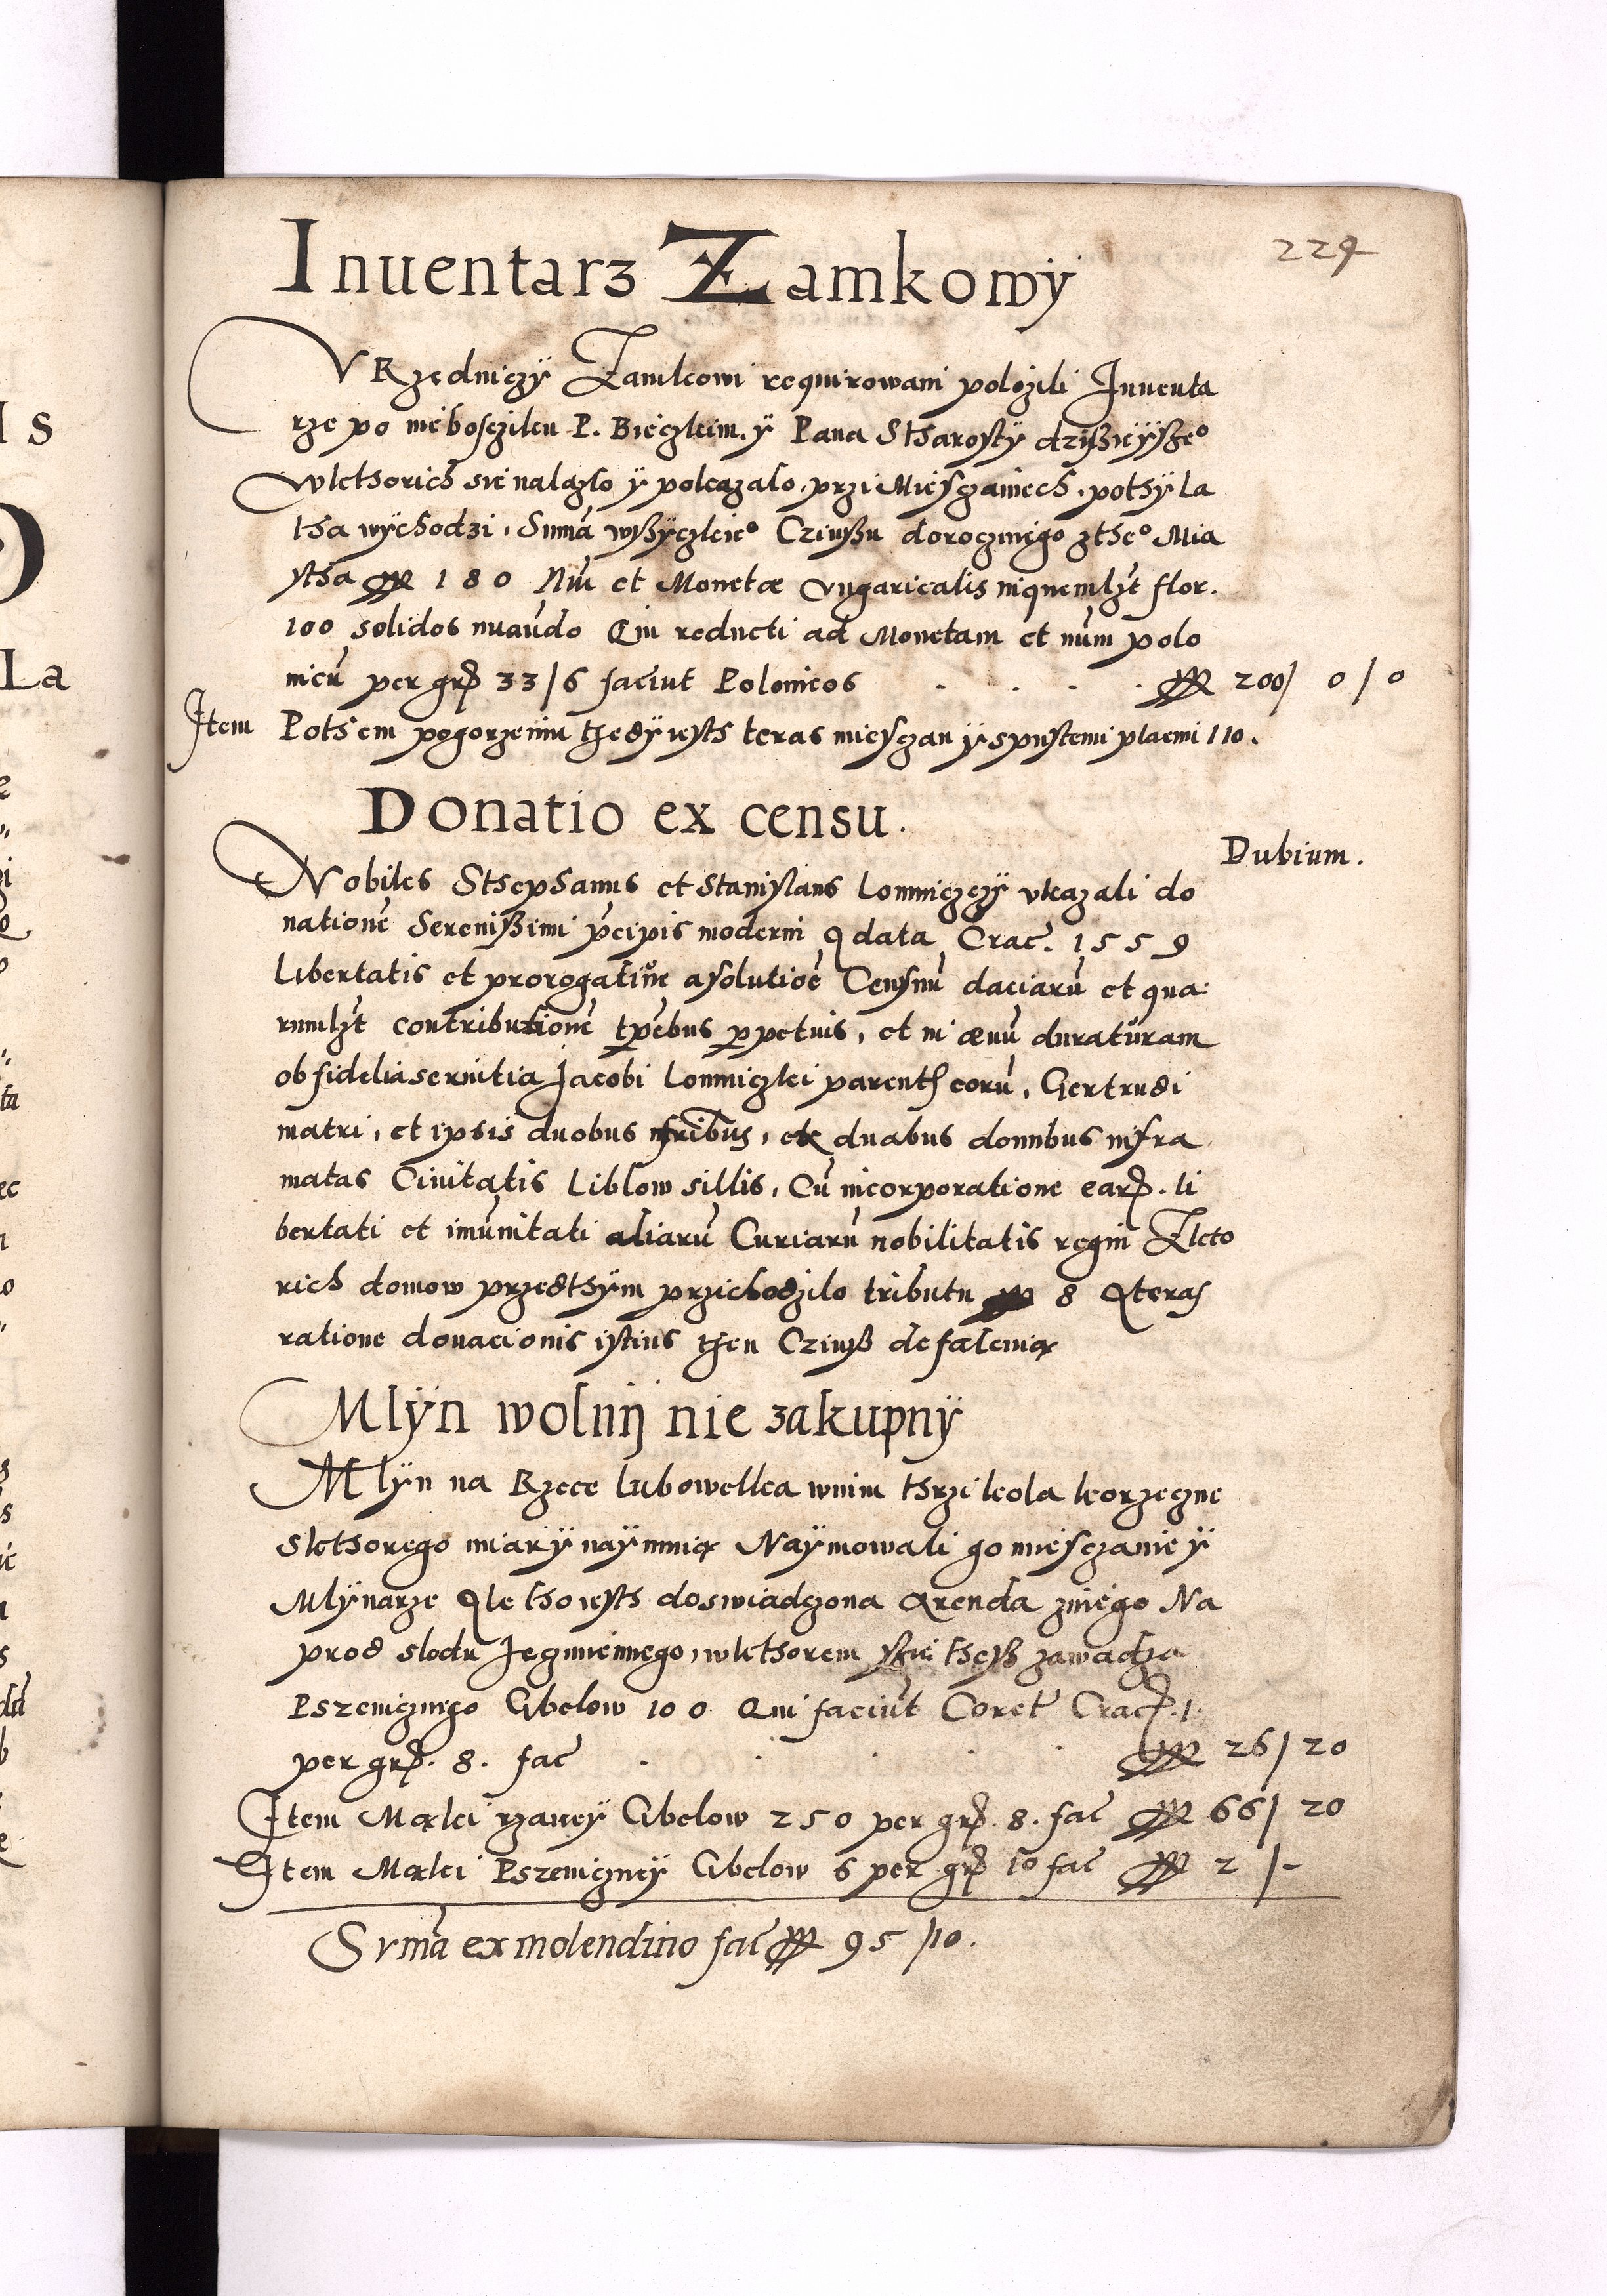 224
Inuentarz Zamkowÿ
VRzędniczÿ Zamkowi requirowani położili Inuenta
rze po nieboscziku P. Bieczkim. y Pana Stharostÿ dzißieÿßeº
wkthorich sie nalazło ÿ pokazało, przi Miesczaniech, pothÿ La
tha wÿchodzi, Sumā wßÿczkieº Czinßu dorocznego ztheº Mia
stha 180 Nūi et Monetæ Vngaricalis in quemlz̄t flor.
100 solidos nuāndo Qui reducti ad Monetam et nūm polo
nicū per gr 33/6 faciut Polonicos . . . . 200/ 0/0
Item Pothem pogorzeniu thedÿ iesth teras miesczan ÿ spustemi placmi 110.
Donatio ex censu.
Dubium.
Nobiles Sthephanus et Stanislaus Lomniczczÿ vkazali do
nationē Serenißimi pͥcipis moderni q data Crac. 1559
Libertatis et prorogatiuͤe asolutioē Censuū daciarū et qua:
rumlz̄t contributionē tp̄ebus ꝑpetuis, et in æuū duratūram
ob fidelia seruitia Jacobi Lomniczki parenth eorū, Gertrudi
matri, et ipsis duobus fribus, et duabus domibus infra
matas Ciuitatis Liblow sillis, Cū incorporatione ear. li
bertati et imūnitati aliarū Curiarū nobilitatis regni Zkto
rich domow przedthÿm przichodziło tributu 8 A teras
ratione donacionis istius then Czinß defalcuią
Mlÿn wolnÿ nie zakupnÿ
Mlÿn na Rzece Lubowelka wnim thrzi koła korzeczne
S kthorego miarÿ naÿmuią Naÿmowali go miesczanie ÿ
Mlÿnarze Ale tho iesth doswiadczona Arenda zniego Na
prod słodu Jęczmiennego, w kthorem sie theß zawadza
Pszenicznego Gbelow 100 Qui faciūt Coret Crac.
per gr. 8. fac . . . . . 26/20
Item Mąki rzaneÿ Gbelow 250 per gr. 8. fac 66/20
Item Mąki Pszeniczneÿ Gbelow 6 per gr 10 fac 2/-
Sumā ex molendino fac 95/10.